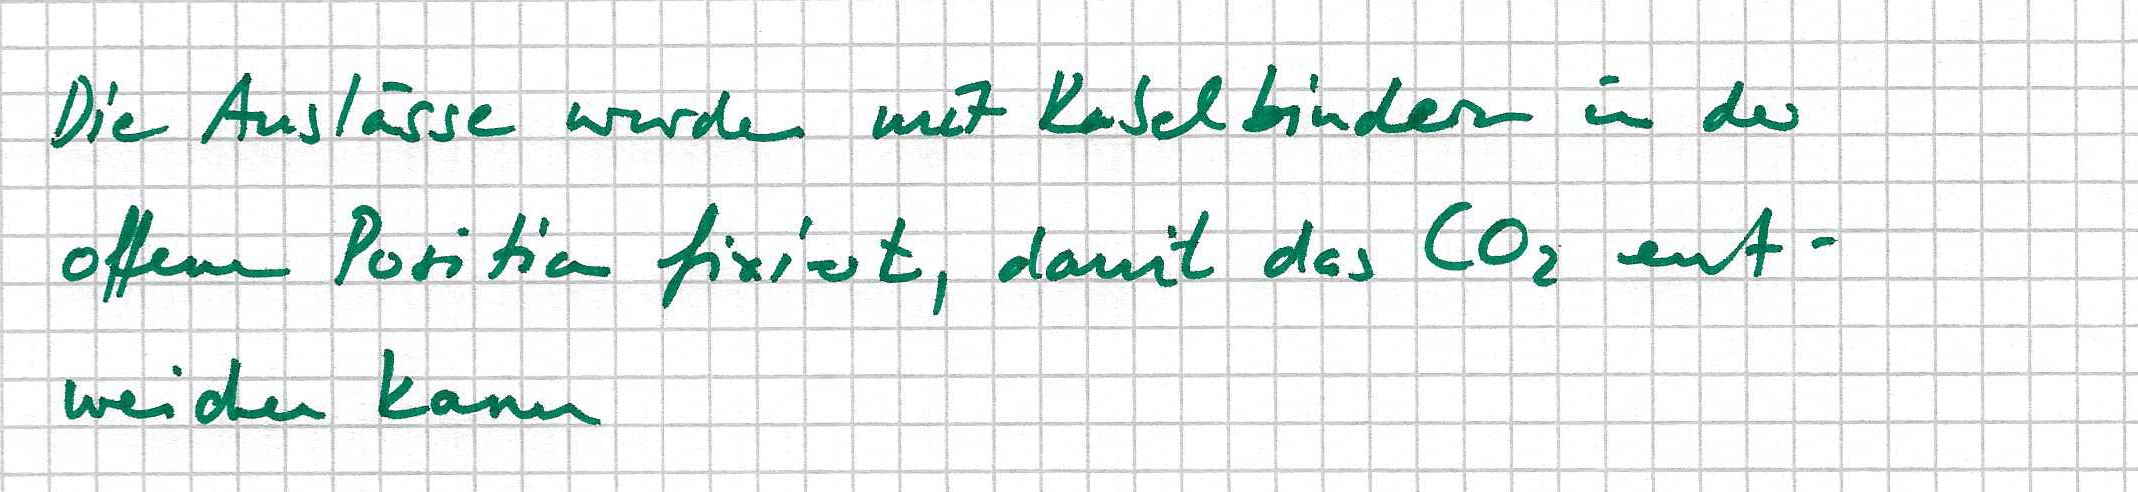 Die Auslässe wurden mit Kabelbindern in der
offenen Position fixiert, damit das CO₂ ent-
weichen kann